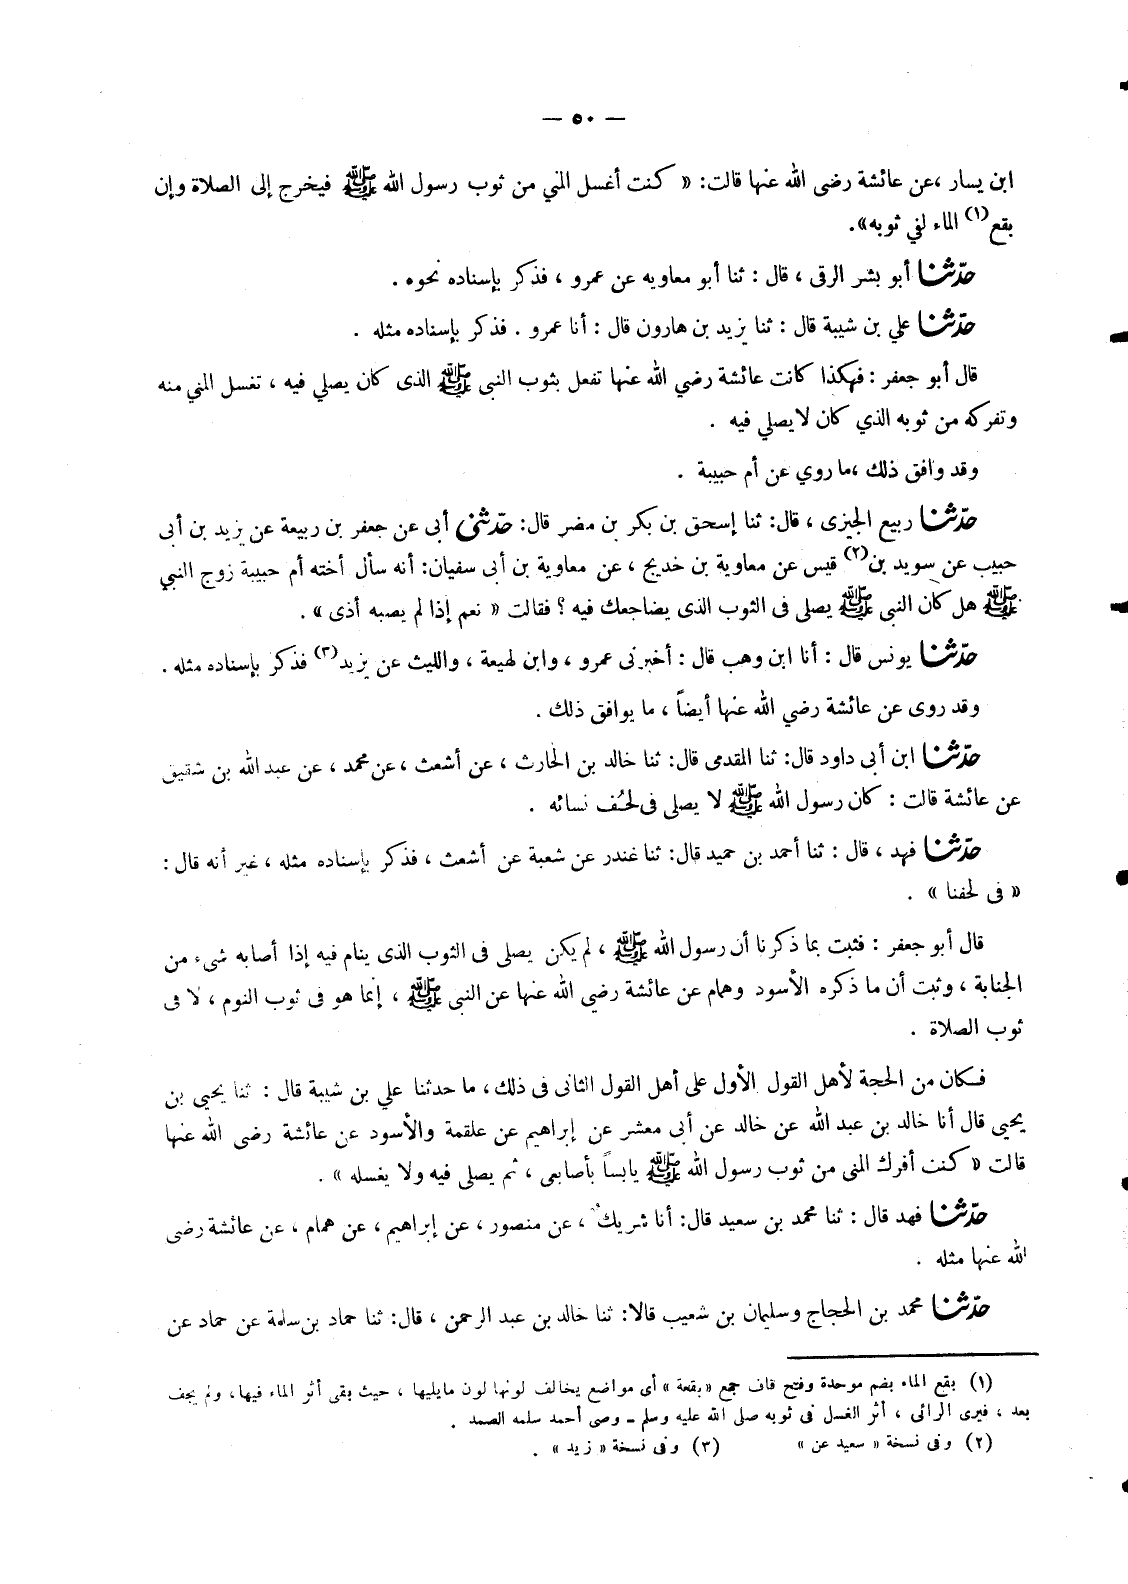 — ٥٠ —
ابن يسار ،عن عائشة رضى الله عنها قالت: « كنت أغسل المني من ثوب رسول الله ﷺ فيخرج إلى الصلاة وإن
بقع(١) الماء لفي ثوبه».
حدّثنا أبو بشر الرقى ، قال : ثنا أبو معاويه عن عمرو ، فذكر بإسناده نحوه .
حدّثنا علي بن شيبة قال : ثنا يزيد بن هارون قال : أنا عمرو . فذكر بإسناده مثله .
قال أبو جعفر : فهكذا كانت عائشة رضي الله عنها تفعل بثوب النبى ﷺ الذى كان يصلي فيه ، تغسل المني منه
وتفركه من ثوبه الذي كان لايصلي فيه .
وقد وافق ذلك ،ما روي عن أم حبيبة .
حدّثنا ربيع الجيزى ، قال: ثنا إسحق بن بكر بن مضر قال: حدّثنى أبى عن جعفر بن ربيعة عن يزيد بن أبى
حبيب عن سويد بن(٢) قيس عن معاوية بن خديج ، عن معاوية بن أبى سفيان: أنه سأل أخته أم حبيبة زوج النبي
ﷺ هل كان النبى ﷺ يصلى فى الثوب الذى يضاجعك فيه ؟ فقالت « نعم إذا لم يصبه أذى » .
حدّثنا يونس قال : أنا ابن وهب قال : أخبرنى عمرو ، وابن لهيعة ، والليث عن يزيد(٣) فذكر بإسناده مثله .
وقد روى عن عائشة رضي الله عنها أيضاً ، ما يوافق ذلك .
حدّثنا ابن أبى داود قال: ثنا المقدمى قال: ثنا خالد بن الحارث ، عن أشعث ، عن محمد ، عن عبد الله بن شقيق
عن عائشة قالت : كان رسول الله ﷺ لا يصلى فى لحُف نسائه .
حدّثنا فهد ، قال : ثنا أحمد بن حميد قال: ثنا غندر عن شعبة عن أشعث ، فذكر بإسناده مثله ، غير أنه قال :
« فى لحفنا » .
قال أبو جعفر : فثبت بما ذكرنا أن رسول الله ﷺ ، لم يكن يصلى فى الثوب الذى ينام فيه إذا أصابه شىء من
الجنابة ، وثبت أن ما ذكره الأسود وهمام عن عائشة رضي الله عنها عن النبى ﷺ ، إنما هو فى ثوب النوم ، لا فى
ثوب الصلاة .
فكان من الحجة لأهل القول الأول على أهل القول الثانى فى ذلك ، ما حدثنا علي بن شيبة قال : ثنا يحيى بن
يحيى قال أنا خالد بن عبد الله عن خالد عن أبى معشر عن إبراهيم عن علقمة والأسود عن عائشة رضى الله عنها
قالت « كنت أفرك المنى من ثوب رسول الله ﷺ يابساً بأصابعى ، ثم يصلى فيه ولا يغسله » .
حدّثنا فهد قال : ثنا محمد بن سعيد قال: أنا شريك ، عن منصور ، عن إبراهيم ، عن همام ، عن عائشة رضى
الله عنها مثله .
حدّثنا محمد بن الحجاج وسليمان بن شعيب قالا: ثنا خالد بن عبد الرحمن ، قال: ثنا حماد بن سلمة عن حماد عن
(١) بقع الماء بضم موحدة وفتح قاف جمع «بقعة» أى مواضع يخالف لونها لون مايليها ، حيث بقى أثر الماء فيها، ولم يجف
بعد ، فيرى الرائى ، أثر الغسل فى ثوبه صلى الله عليه وسلم ـ وصى أحمد سلمه الصمد .
(٢) وفى نسخة « سعيد عن » (٣) وفى نسخة « زيد » .